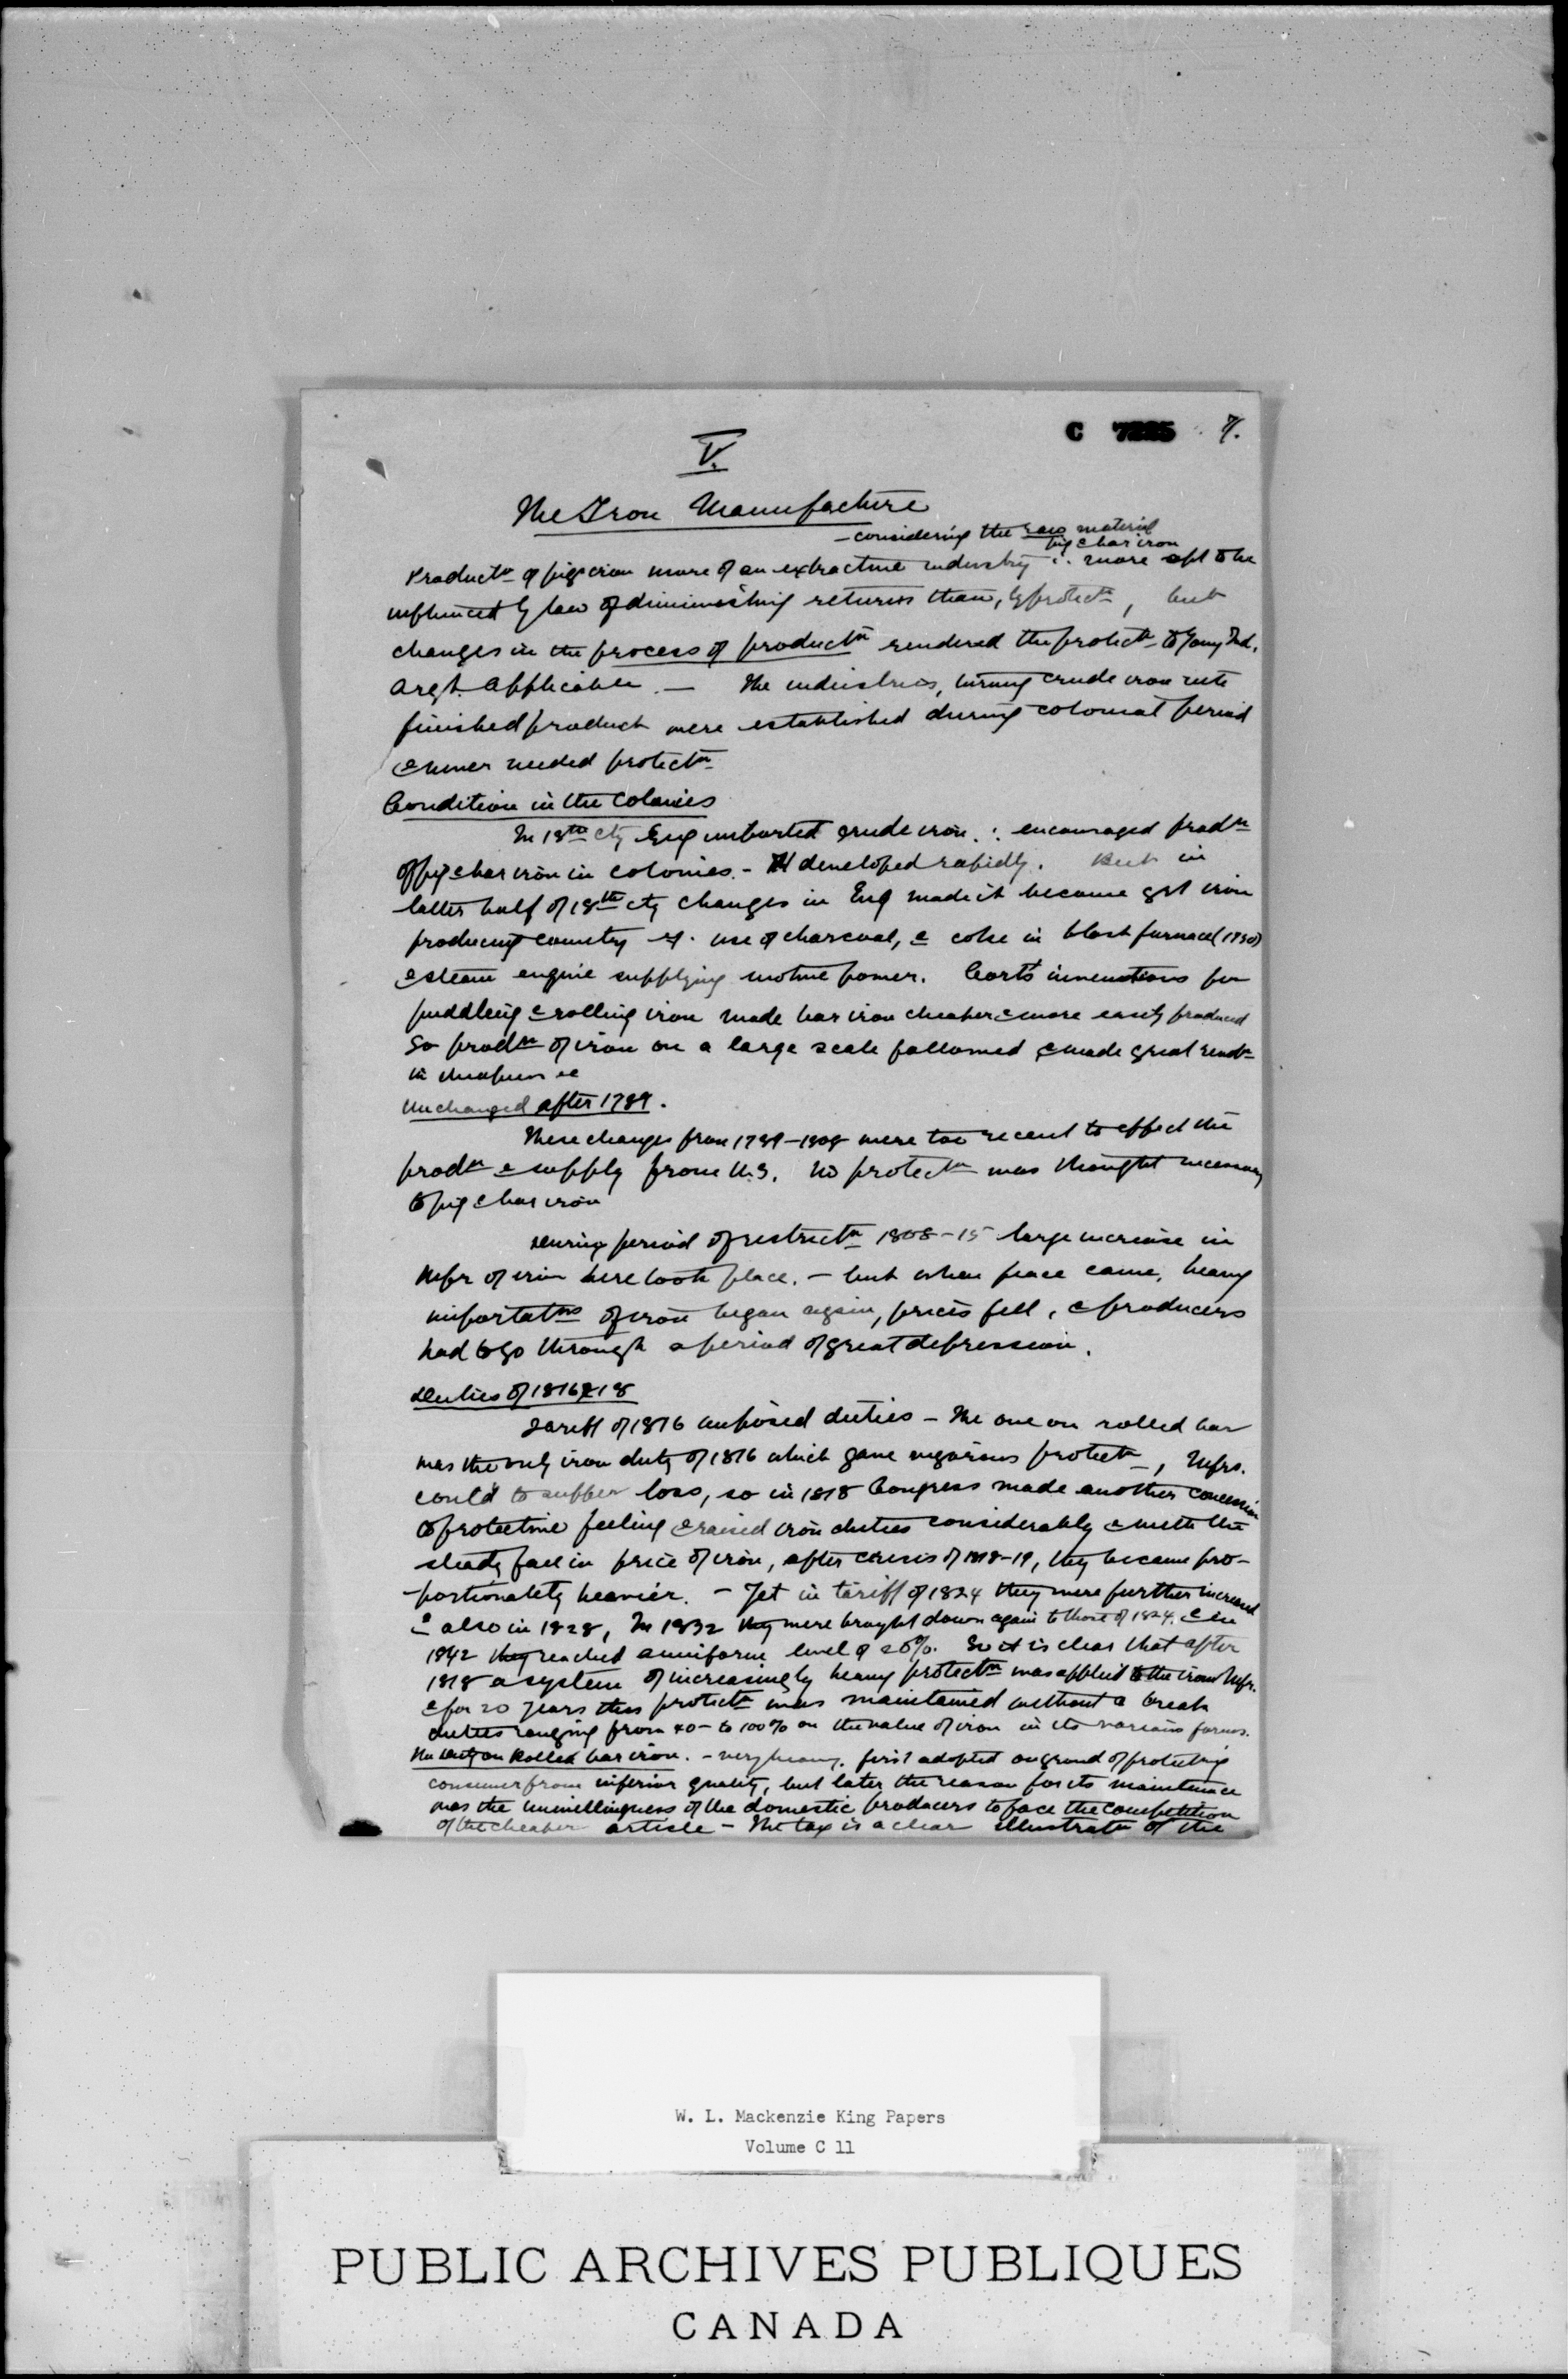 C 7225 7.
V.
The Iron Manufacture
- considering the raw material
pig & bar iron
Productn of pig iron more of an extractive industry ∴ more apt to be
influenced by law of diminishing returns than, by protectn, but
changes in the process of productn rendered the protectn to Young Ind.
Argt. applicable. — The industries, turning crude iron into
finished product were established during colonial period
& never needed protectn
Condition in the Colonies
In 18th cty Eng imported crude iron ∴ encouraged prodn
of pig & bar iron in colonies. - It developed rapidly. But in
latter half of 18th cty changes in Eng made it become grt iron
producing country eg. use of charcoal, & coke in blast furnace (1750)
& steam engine supplying motive power. Cort's innovations for
puddling & rolling iron made bar iron cheaper & more easily produced
So prodn of iron on a large scale followed & made great
in
Unchanged after 1789.
These changes from 1789-1808 were too recent to effect the
prodn & supply from U.S. No protectn was thought necessary
to pig & bar iron
During period of restrictn 1808-15 large increase in
Mfr of iron here took place. - but when peace came, heavy
importatns of iron began again, prices fell, & producers
had to go through a period of great depression.
Duties of 1816 & 18
Tariff of 1816 imposed duties - The one on rolled bar
was the only iron duty of 1816 which gave vigorous protectn, Mfrs.
to suffer loss, so in 1818 Congress made another concession
to protective feeling & raised iron duties considerably & with the
steady fall in price of iron, after crisis of 1818-19, they became pro-
portionately heavier. - Yet in tariff of 1824 they were further increased
& also in 1828, In 1832 they were brought down again to those of 1824. & in
1842 they reached a uniform level of 20%. So it is clear that after
1818 a system of increasingly heavy protectn was applied to the iron Mfr.
& for 20 years this protectn was maintained without a break
duties ranging from 40- to 100% on the value of iron in its various forms.
The duty on Rolled bar iron. - very heavy. first adopted on ground of protecting
consumer from inferior quality, but later the reason for its maintenance
was the unwillingness of the domestic producers to face the competition
of the cheaper article - The tax is a clear illustratn of the
W. L. Mackenzie King Papers
Volume C 11
PUBLIC ARCHIVES PUBLIQUES
CANADA